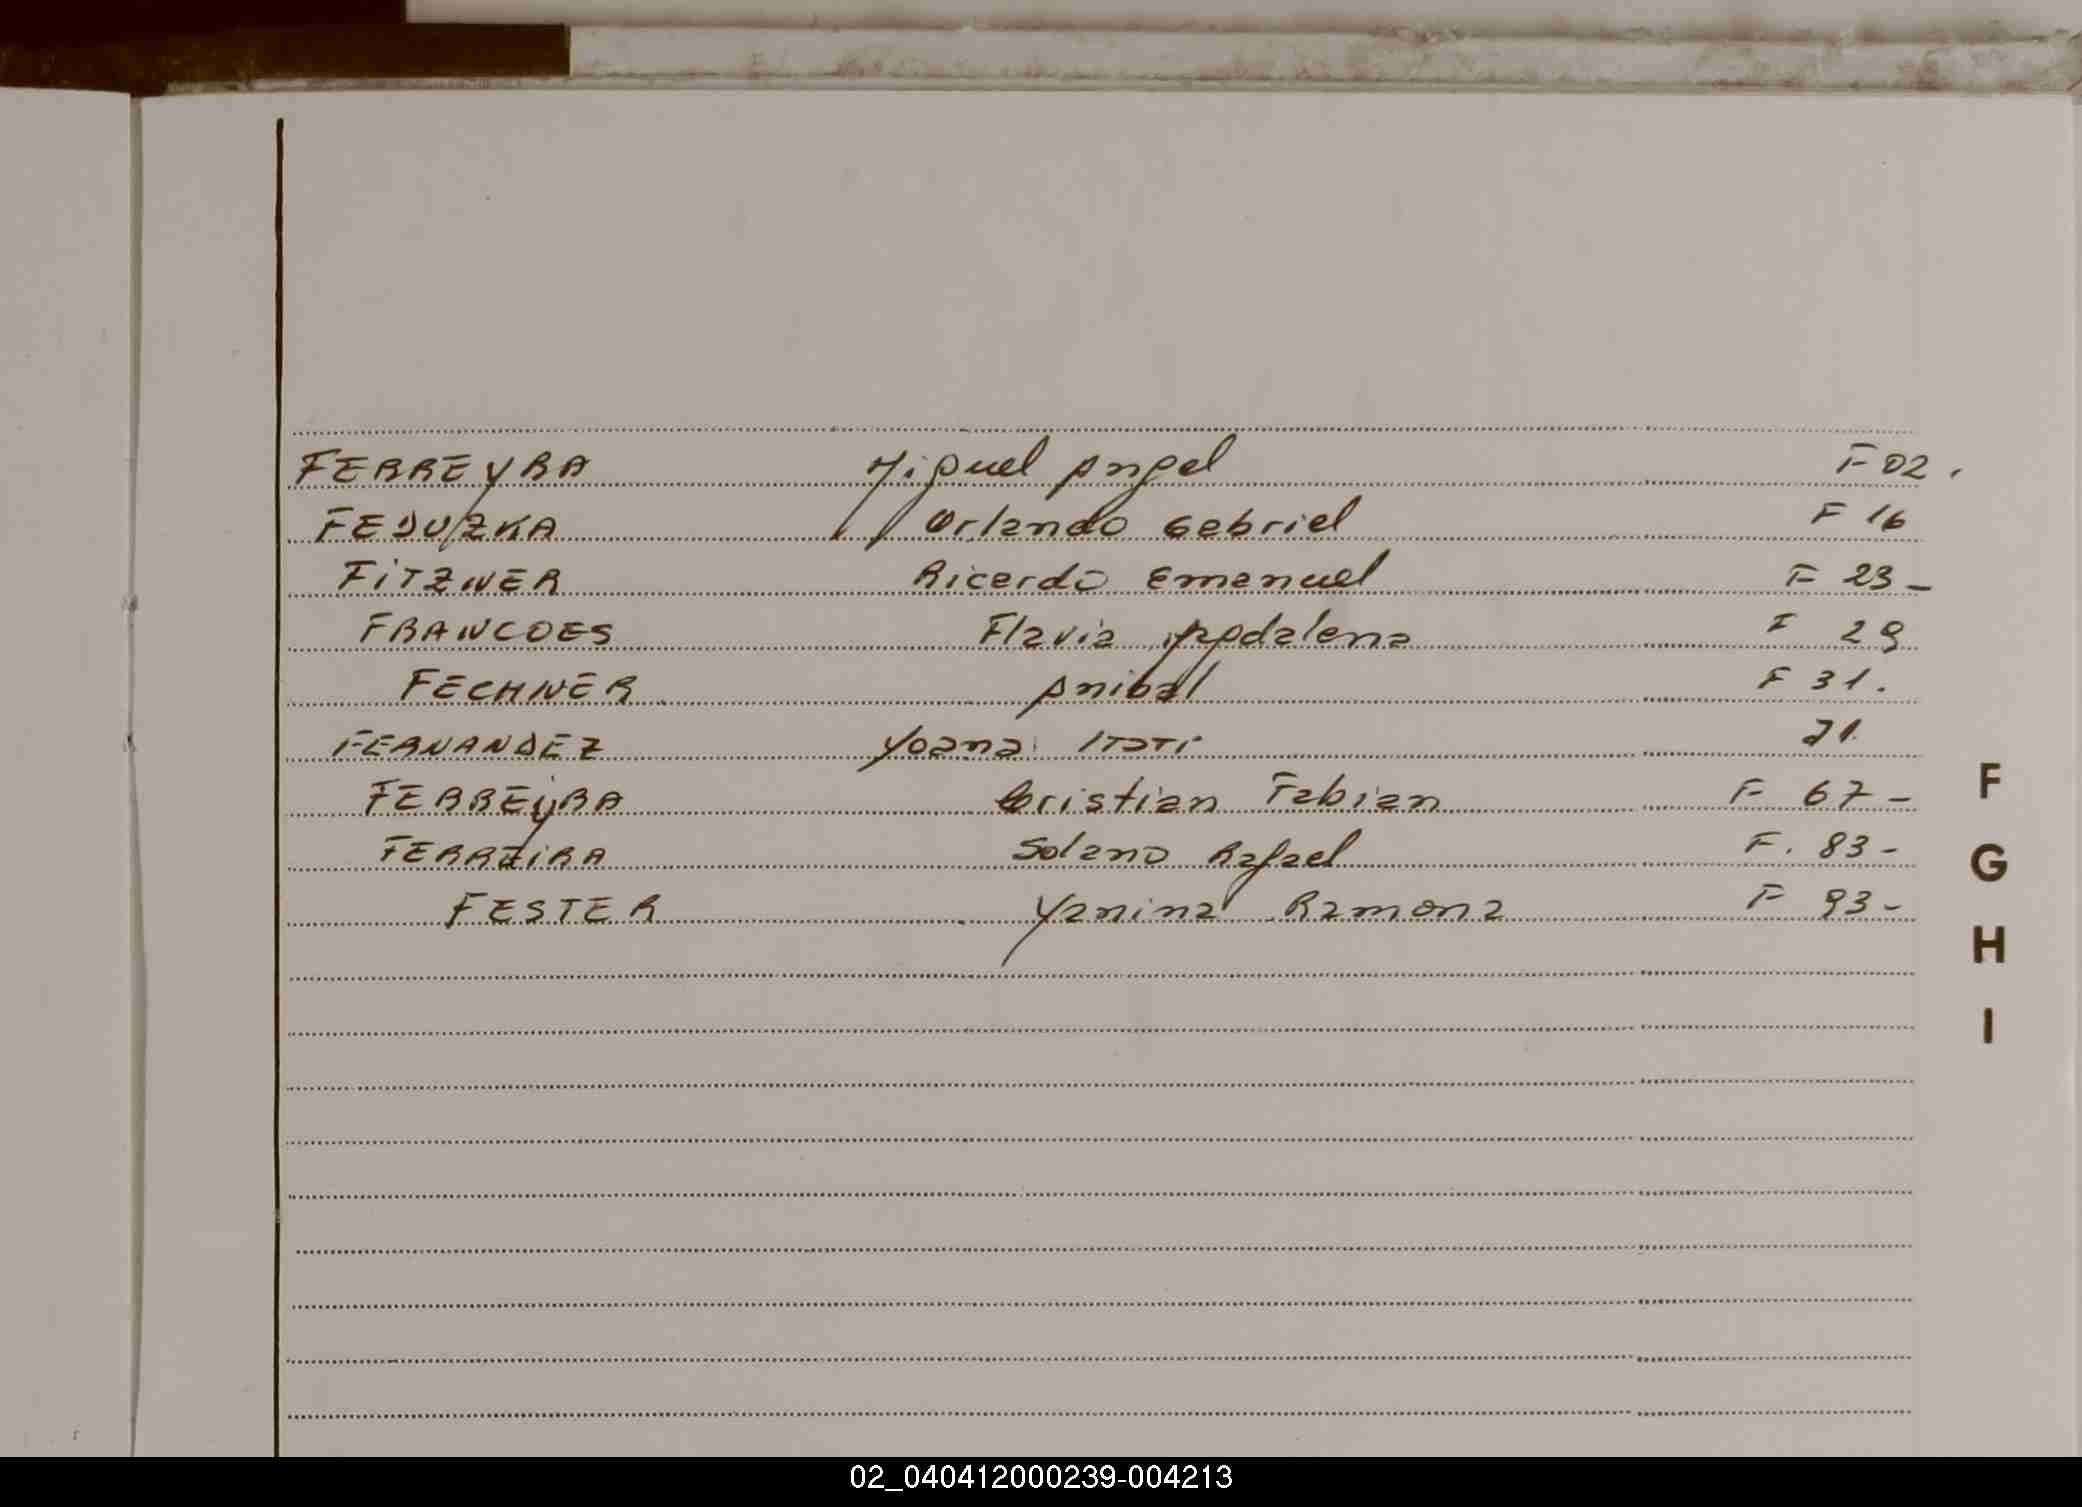 FERREYRA Miguel Angel F 02.
FEDUZKA Orlando Gabriel F 16
FITZNER Ricardo Emanuel F 23 -
FRANCOES Flavia Magdalena F 29
FECHNER Anibal F 31.
FERNANDEZ Yoana Itati 71
FERREYRA Cristian Fabian F 67 -
FERREIRA Solano Rafael F. 83 -
FESTER Yanina Ramona F 93 -
F
G
H
I
02_040412000239-004213